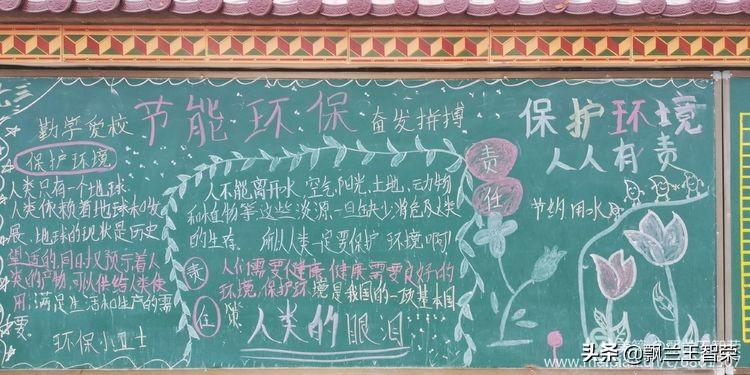 节能环保
勤学爱校
奋发拼搏
保护环境
人类只有一个地球
人类依赖着地球和发
展.地球的现状是历史
类的产物,可以供给人类使
用,满足生活和生产的需
要.
环保小卫士
人不能离开水,空气,阳光,土地,动物
和植物等,这些资源,一旦缺少,将危及人类
的生存.所以人类一定要保护环境啊!
责
任
人们需要健康,健康需要良好的
环境,保护环境是我国的一项基本国
策
人类的眼泪
责
任
保护环境
人人有责
节约用水
头条@飘兰王智荣